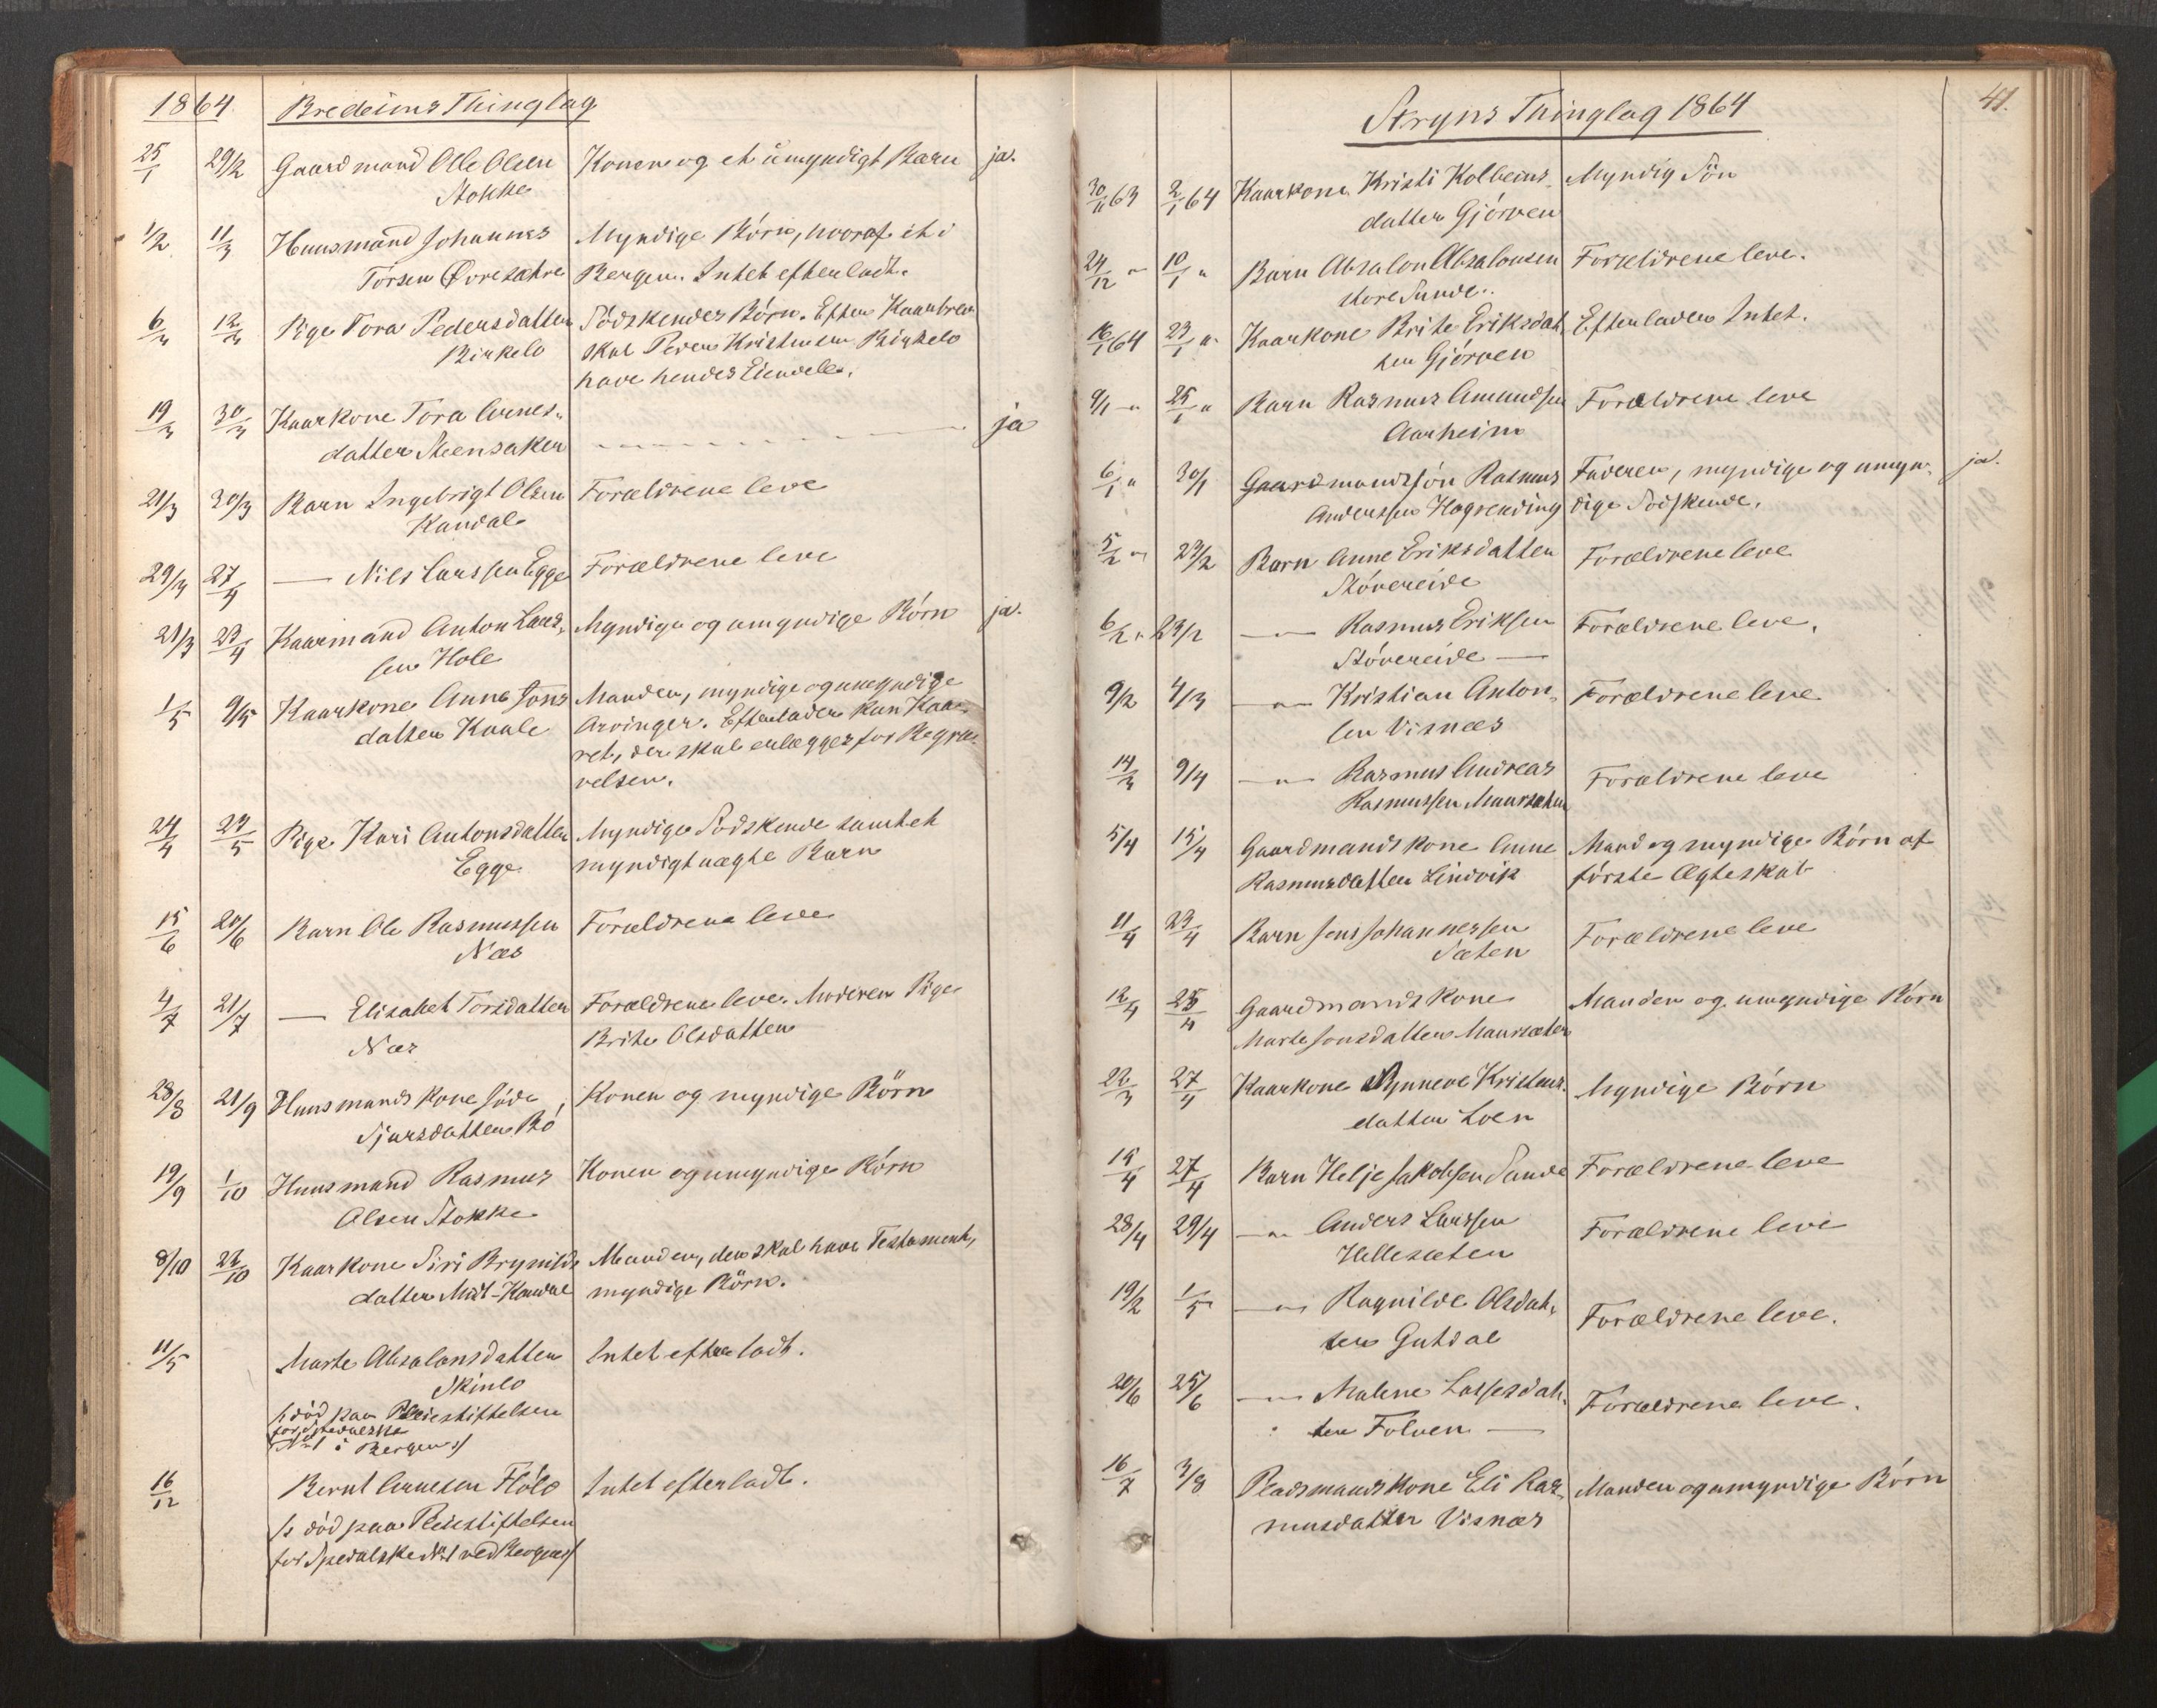 1864. Bredeims Thinglag
25/1 29/2 Gaardmand Olle Olsen Konen og et umyndigt Barn ja.
Stokke
1/2 11/3 Huusmand Johannes Myndige Børn, hvoraf et i
Torsen Øvresætre Bergen. Intet efterladt.
6/3 12/3 Pige Tora Pedersdatter Södskendes Børn. Efter Kaarbrev
Birkelo skal Peder Kristensen Birkelo
have hendes Eiendele.
19/3 30/3 Kaarkone Tora Arnes-
datter Steensaker ja
21/3 30/3 Barn Ingebrigt Olsen Forældrene leve
Kandal
29/3 27/4 — Nils Larssen Egge Forældrene leve
21/3 29/4 Kaarmand Anton Lars- Myndige og umyndige Børn ja.
sen Hole
1/5 9/5 Kaarkone Anna Jons Manden, myndige og umyndige
datter Kaale Arvinger. Efterlader kun Kaa-
ret, der skal erlægges for Begra-
velsen.
24/4 27/5 Pige Kari Antonsdatter Myndige Södskende samt et
Egge myndigt uægte Barn
15/6 20/6 Barn Ole Rasmussen Forældrene leve
Næs
4/7 21/7 — Elisabet Torsdatter Forældrene leve. Moderen Pige
Næs Brite Olsdatter
28/8 21/9 Huusmands kone Jöde Konen og myndige Börn
Sjursdatter Bö
19/9 1/10 Huusmand Rasmus Konen og umyndige Børn
Olsen Stokke
8/10 22/10 Kaarkone Siri Brynilds Manden, der skal have Testament,
datter Midt-Kandal myndige Börn.
11/5 Marte Absalonsdatter Intet efterladt.
Skinlo
/: död paa Pleiestiftelsen
for Spedalske
No 1 i Bergen :/
16/12 Bernt Arnesen Flölo Intet efterladt.
/: död paa Pleiestiftelsen
for Spedalske No 1 ved Bergen :/
Stryns Thinglag 1864 41.
30/11 63 2/1 64 Kaarkone Kristi Kolbeins- Myndig Sön
datter Gjörven
24/12 " 10/1 " Barn Absalon Absalonsen Forældrene leve.
store Sunde.
16/1 64 23/1 " Kaarkone Brite Eriksdat- Efterlader Intet.
ter Gjörven
9/1 " 25/1 " Barn Rasmus Amundsen Forældrene leve
Aarheim
6/1 " 30/1 Gaardmandssön Rasmus Faderen, myndige og umyn- ja.
Anderssen Hogrending dige Södskende.
5/2 " 23/2 Barn Anne Eriksdatter Forældrene leve
Stövereide
6/2 " 23/2 —"— Rasmus Eriksen Forældrene leve.
Stövereide —
9/2 4/3 —"— Kristian Anton- Forældrene leve
sen Visnæs
14/3 9/4 —"— Rasmus Andreas Forældrene leve
Rasmussen Maursæter
5/4 15/4 Gaardmands kone Anne Mand og myndige Börn af
Rasmusdatter Lindvik förste Ægteskab
11/4 23/4 Barn Jens Johannessen Forældrene leve
Sæten
12/4 25/4 Gaardmands kone Manden og umyndige Börn
Marte Jonsdatter Maursæter
22/3 27/4 Kaarkone Synneve Kristens- Myndige Börn
datter Loen
15/4 27/4 Barn Helje Jakobsen Sande Forældrene leve
28/4 29/4 —"— Anders Larssen Forældrene leve
Hellesæten
19/2 1/5 —"— Ragnilde Olsdat- Forældrene leve.
ter Gutdal
20/6 25/6 —"— Malene Lassesdat- Forældrene leve.
ter Folven —
16/7 3/8 Pladsmands kone Eli Ras- Manden og umyndige Börn
musdatter Visnæs